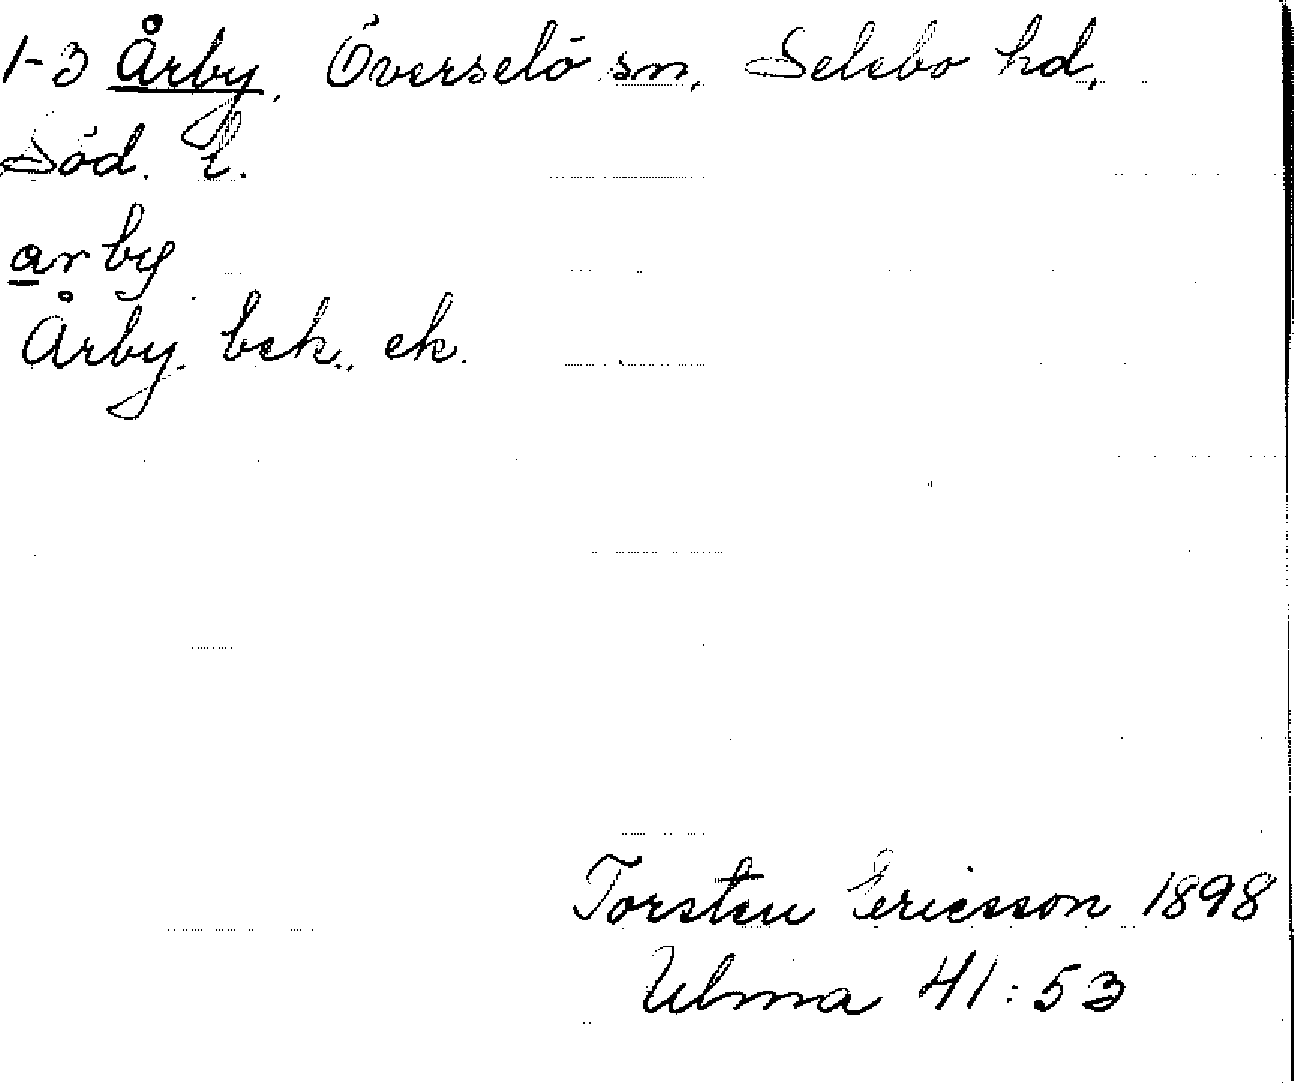 1-3 Årby, Överselö sn, Selebo hd,
Söd. l.
arby
Årby, bek., ek.
Torsten Ericsson 1898
Ulma 41:53